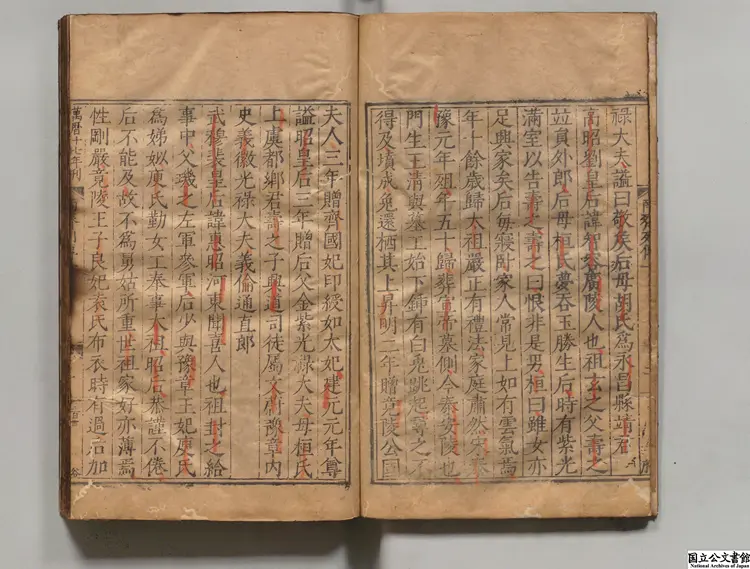 祿大夫謚曰敬侯后母胡氏為永昌縣靖君
高昭劉皇后諱智容廣陵人也祖玄之父壽之
竝員外郎后母桓氏夢吞玉勝生后時有紫光
滿室以告壽之壽之曰恨非是男桓曰雖女亦
足興家矣后每寢臥家人常見上如有雲氣焉
年十餘歲歸太祖嚴正有禮法家庭肅然宋泰
豫元年殂年五十歸葬宣帝墓側今泰安陵也
門生王清與墓工始下鍤有白兔跳起尋之不
得及墳成兔還栖其上昇明二年贈竟陵公國
夫人三年贈齊國妃印綬如太妃建元元年尊
謚昭皇后三年贈后父金紫光祿大夫母桓氏
上虞都鄉君壽之子興道司徒屬文蔚豫章內
史義徽光祿大夫義倫通直郎
武穆裴皇后諱惠昭河東聞喜人也祖封之給
事中父璣之左軍參軍后少與豫章王妃庾氏
為娣姒庾氏勤女工奉事太祖昭后恭謹不倦
后不能及故不為舅姑所重世祖家好亦薄焉
性剛嚴竟陵王子良妃袁氏布衣時有過后加
萬曆十七年刊
国立公文書館
National Archives of Japan